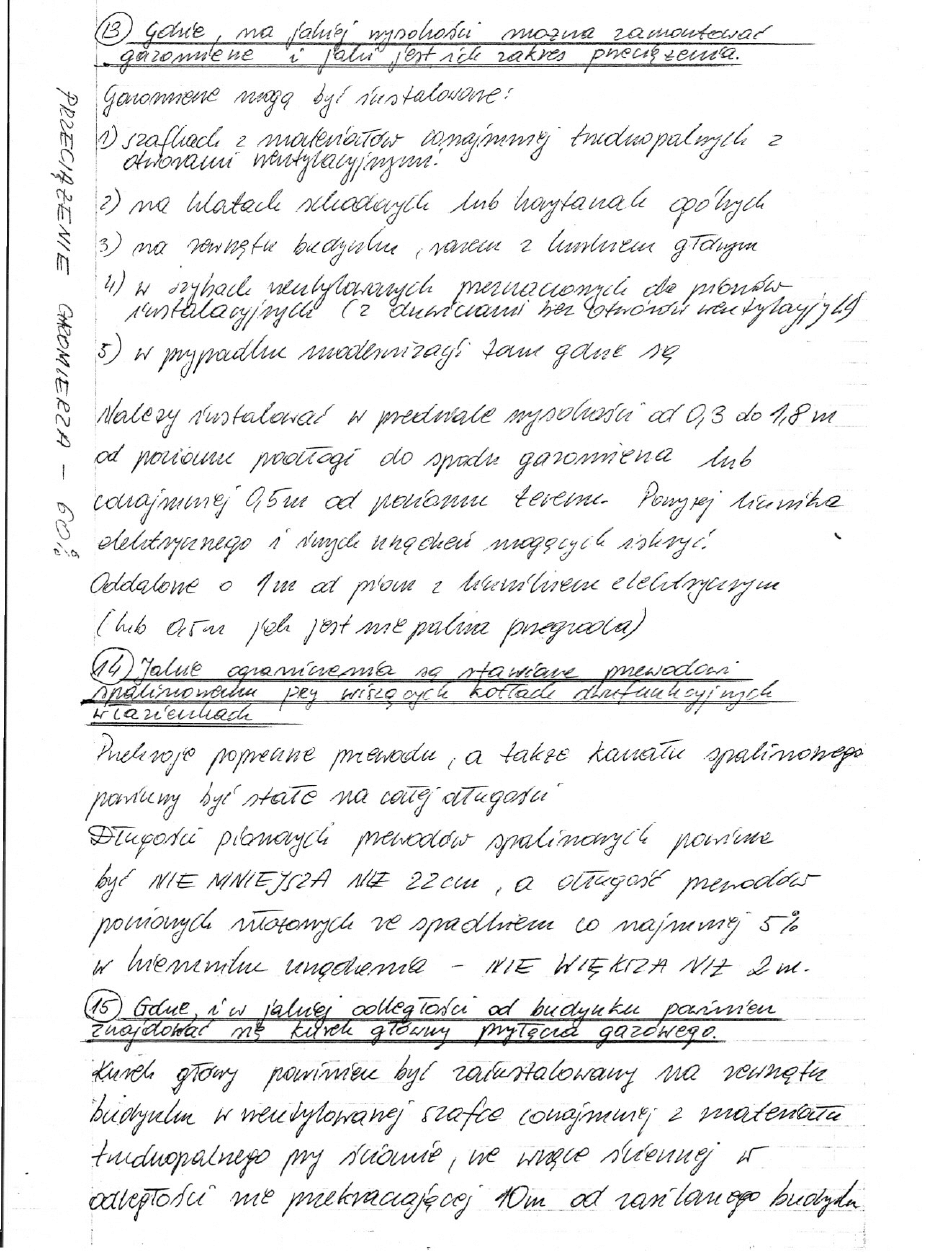 13) Gdzie, na jakiej wysokości można zamontować
gazomierze i jaki jest ich zakres przeciążenia.
Gazomierze mogą być instalowane:
1) szafkach z materiałów conajmniej trudnopalnych z
otworami wentylacyjnymi.
2) na klatach schodowych lub korytarzach ogólnych
3) na zewnątrz budynku, razem z kurkiem głównym
4) w szybach wentylowanych przeznaczonych do pionów
instalacyjnych (z drzwiczkami bez otworów wentylacyjnych)
5) w przypadku modernizacji tam gdzie są
Należy instalować w przedziale wysokości od 0,3 do 1,8 m
od poziomu podłogi do spodu gazomierza lub
conajmniej 0,5m od poziomu terenu. Powyżej licznika
elektrycznego i innych urządzeń mogących iskrzyć.
Oddalone o 1m od pionu z licznikiem elektrycznym
(lub 0,5m jak jest nie palna przegroda)
PRZECIĄŻENIE GAZOMIERZA – 60%
14) Jakie ograniczenia są stawiane przewodowi
spalinowemu przy wiszących kotłach dwufunkcyjnych
w łazienkach
Przekroje poprzeczne przewodu, a także kanału spalinowego
powinny być stałe na całej długości
Długości pionowych przewodów spalinowych powinna
być NIE MNIEJSZA NIŻ 22cm, a długość przewodów
poziomych ułożonych ze spadkiem co najmniej 5%
w kierunku urządzenia – NIE WIĘKSZA NIŻ 2m.
15) Gdzie, i w jakiej odległości od budynku powinien
znajdować się kurek główny przyłącza gazowego.
Kurek główny powinien być zainstalowany na zewnątrz
budynku w wentylowanej szafce conajmniej z materiału
trudnopalnego przy ścianie, we wnęce ściennej w
odległości nie przekraczającej 10m od zasilanego budynku